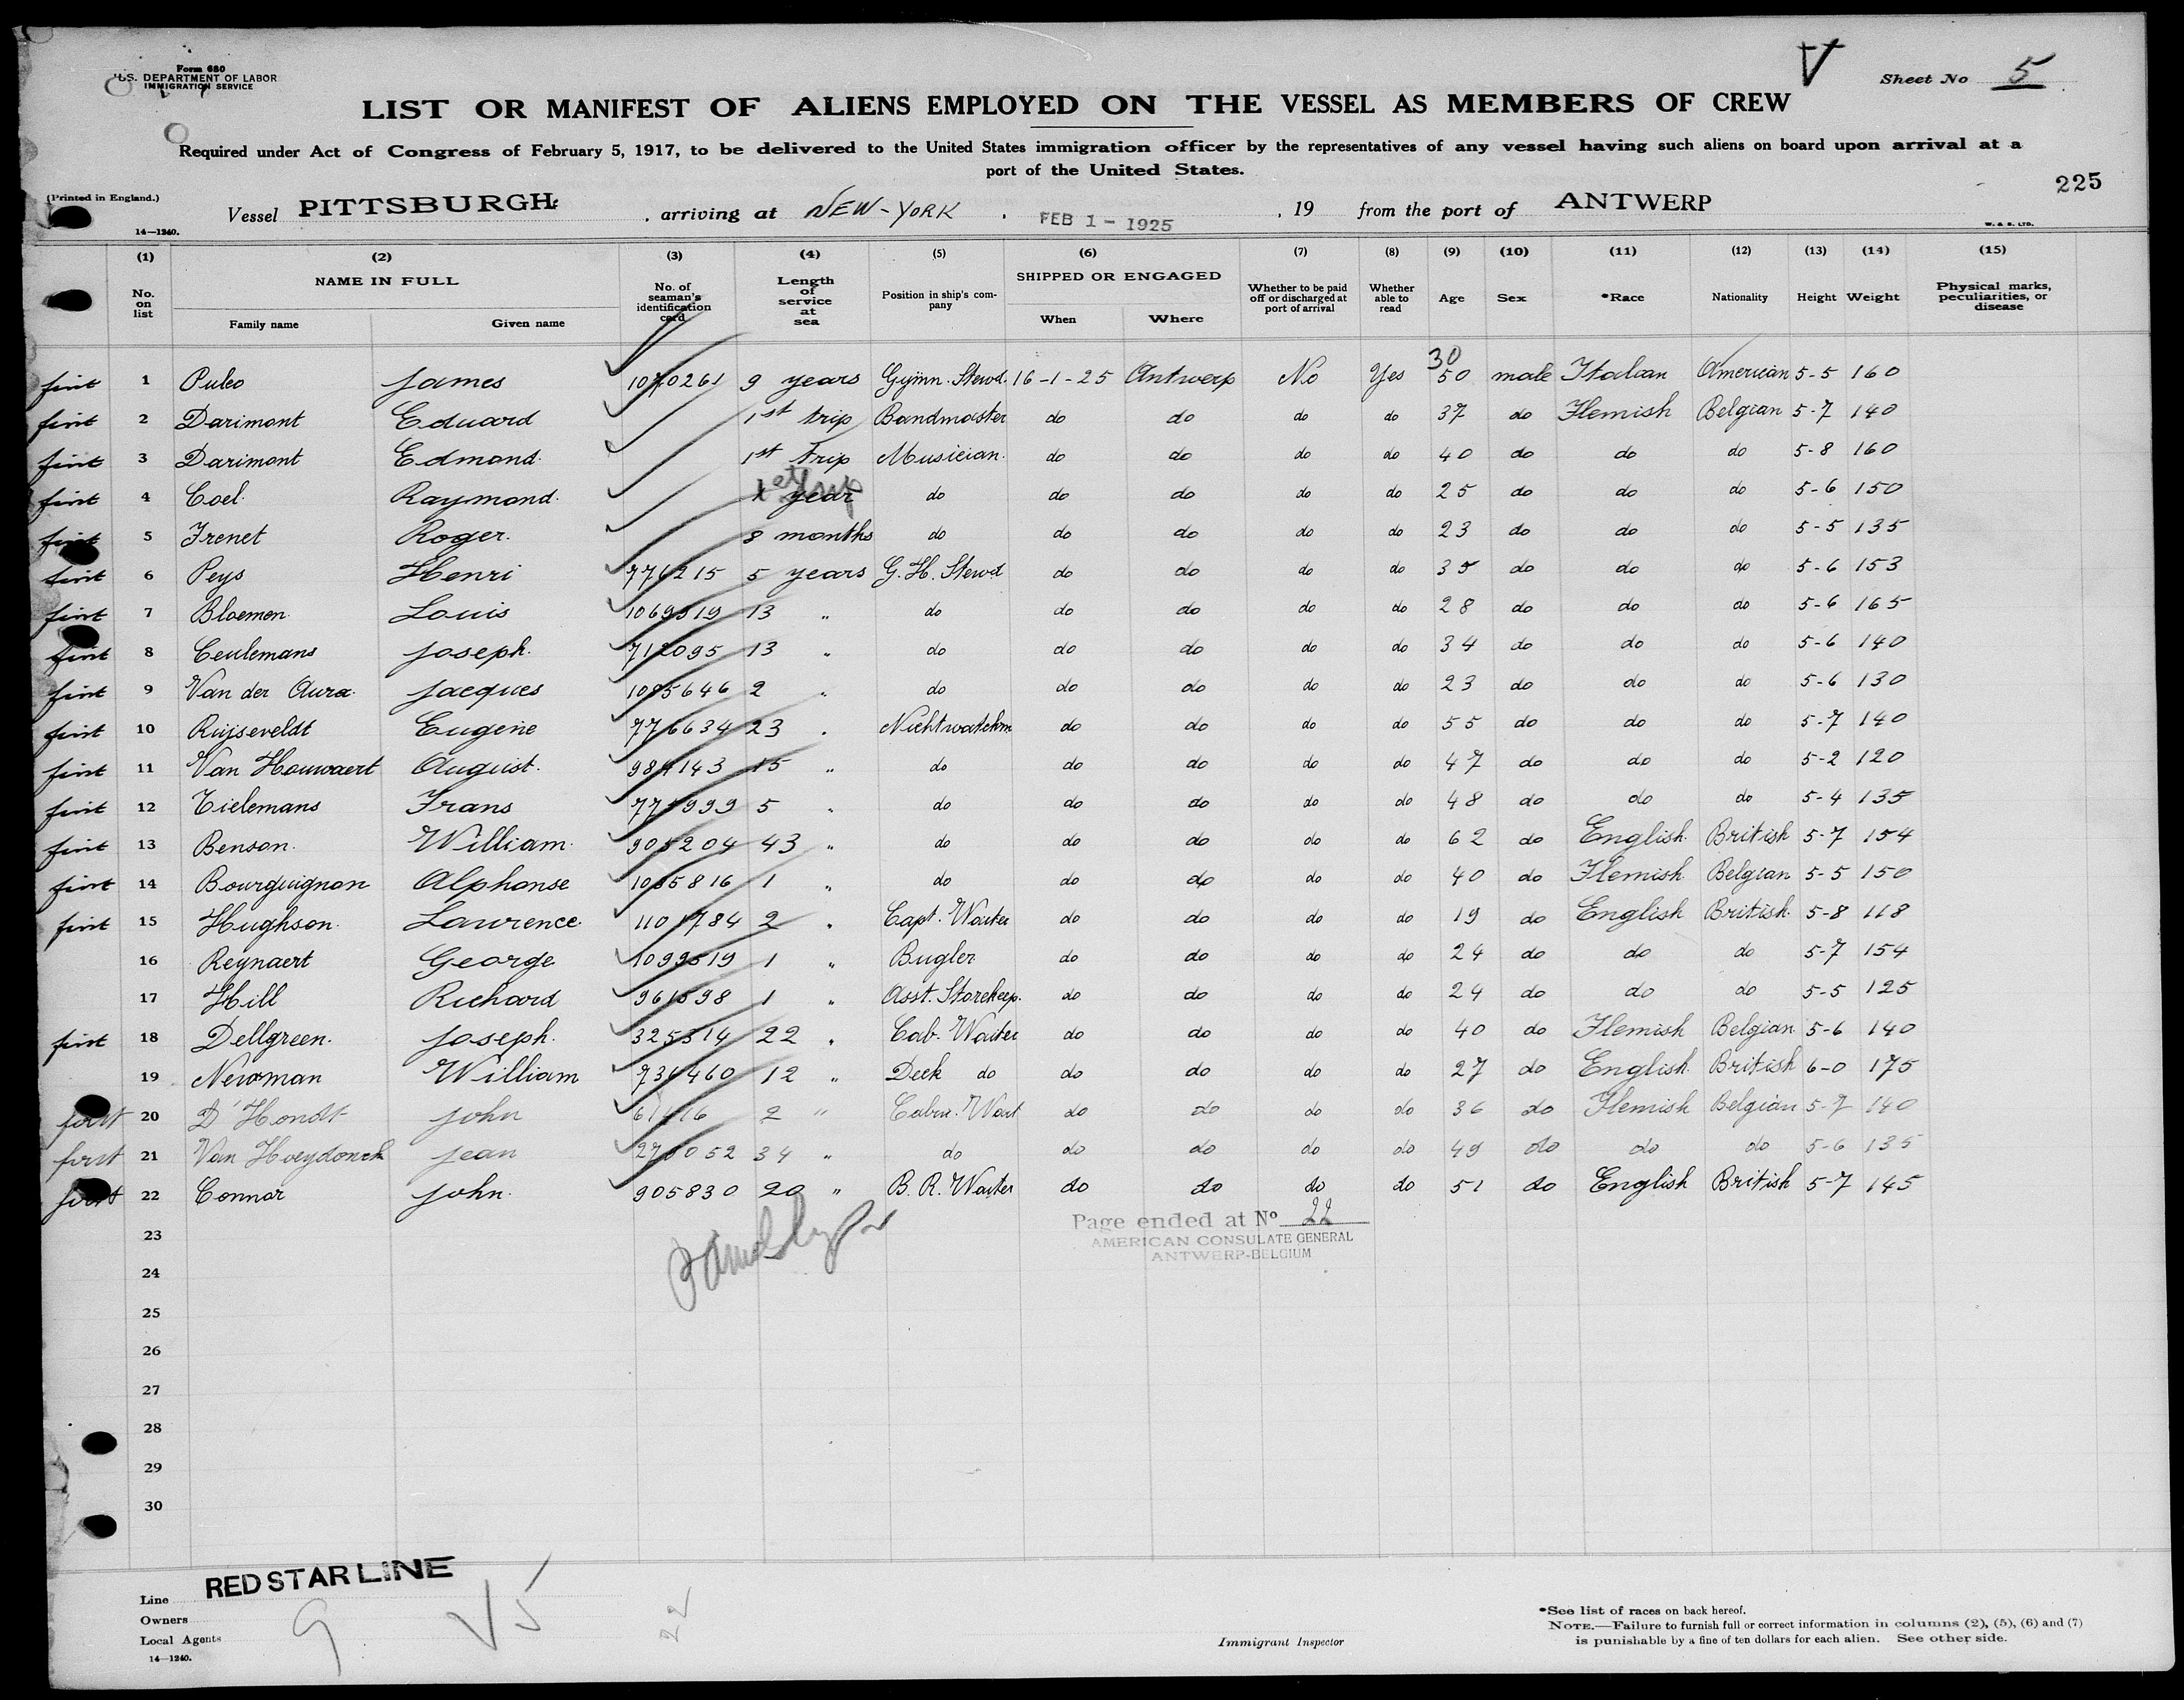 Form 680
U.S. DEPARTMENT OF LABOR
IMMIGRATION SERVICE
Sheet No 5
LIST OR MANIFEST OF ALIENS EMPLOYED ON THE VESSEL AS MEMBERS OF CREW
Required under Act of Congress of February 5, 1917, to be delivered to the United States immigration officer by the representatives of any vessel having such aliens on board upon arrival at a
port of the United States.
225
(Printed in England.)
Vessel PITTSBURGH, arriving at NEW-YORK, FEB 1 - 1925, 19 from the port of ANTWERP
14—1240.
W. & S. LTD.
(1) (2) (3) (4) (5) (6) (7) (8) (9) (10) (11) (12) (13) (14) (15)
No. on list NAME IN FULL Family name Given name No. of seaman's identification card Length of service at sea Position in ship's company SHIPPED OR ENGAGED When Where Whether to be paid off or discharged at port of arrival Whether able to read Age Sex *Race Nationality Height Weight Physical marks, peculiarities, or disease
30
first 1 Puleo James 1070261 9 years Gymn. Stewd. 16-1-25 Antwerp No Yes 50 male Italian American 5-5 160
first 2 Darimont Eduard 1st trip Bandmaster do do do do 37 do Flemish Belgian 5-7 140
first 3 Darimont Edmond. 1st trip Musician. do do do do 40 do do do 5-8 160
first 4 Coel. Raymond. 1st trip year do do do do do 25 do do do 5-6 150
first 5 Frenet Roger. 8 months do do do do do 23 do do do 5-5 135
first 6 Peys Henri 776215 5 years G. H. Stewd do do do do 35 do do do 5-6 153
first 7 Bloemen. Louis 1069519 13 " do do do do do 28 do do do 5-6 165
first 8 Ceulemans Joseph. 712095 13 " do do do do do 34 do do do 5-6 140
first 9 Van der Aura. Jacques 1085646 2 " do do do do do 23 do do do 5-6 130
first 10 Ruijseveldt Eugene 776634 23 " Nichtwatchm do do do do 55 do do do 5-7 140
first 11 Van Houwaert August. 984143 15 " do do do do do 47 do do do 5-2 120
first 12 Tielemans Frans 775999 5 " do do do do do 48 do do do 5-4 135
first 13 Benson. William. 905204 43 " do do do do do 62 do English. British 5-7 154
first 14 Bourguignon Alphonse 1085816 1 " do do do do do 40 do Flemish. Belgian 5-5 150
first 15 Hughson. Lawrence. 1101784 2 " Capt. Waiter do do do do 19 do English British. 5-8 118
16 Reynaert George. 1099519 1 " Bugler do do do do 24 do do do 5-7 154
17 Hill Richard 961598 1 " Asst. Storekeep. do do do do 24 do do do 5-5 125
first 18 Dellgreen. Joseph. 325314 22 " Cab. Waiter do do do do 40 do Flemish Belgian 5-6 140
19 Newman William 734460 12 " Deck do do do do do 27 do English. British 6-0 175
first 20 D'Hondt John 2 " Cabin. Wait do do do do 36 do Flemish Belgian 5-7 140
first 21 Van Hoeydonck Jean 34 " do do do do do 49 do do do 5-6 135
first 22 Connor John. 905830 20 " B. R. Waiter do do do do 51 do English British 5-7 145
Page ended at No 22
AMERICAN CONSULATE GENERAL
ANTWERP-BELGIUM
23
24
25
26
27
28
29
30
Line RED STAR LINE
Owners
Local Agents
14—1240.
9
22
Immigrant Inspector
*See list of races on back hereof.
NOTE.—Failure to furnish full or correct information in columns (2), (5), (6) and (7)
is punishable by a fine of ten dollars for each alien. See other side.